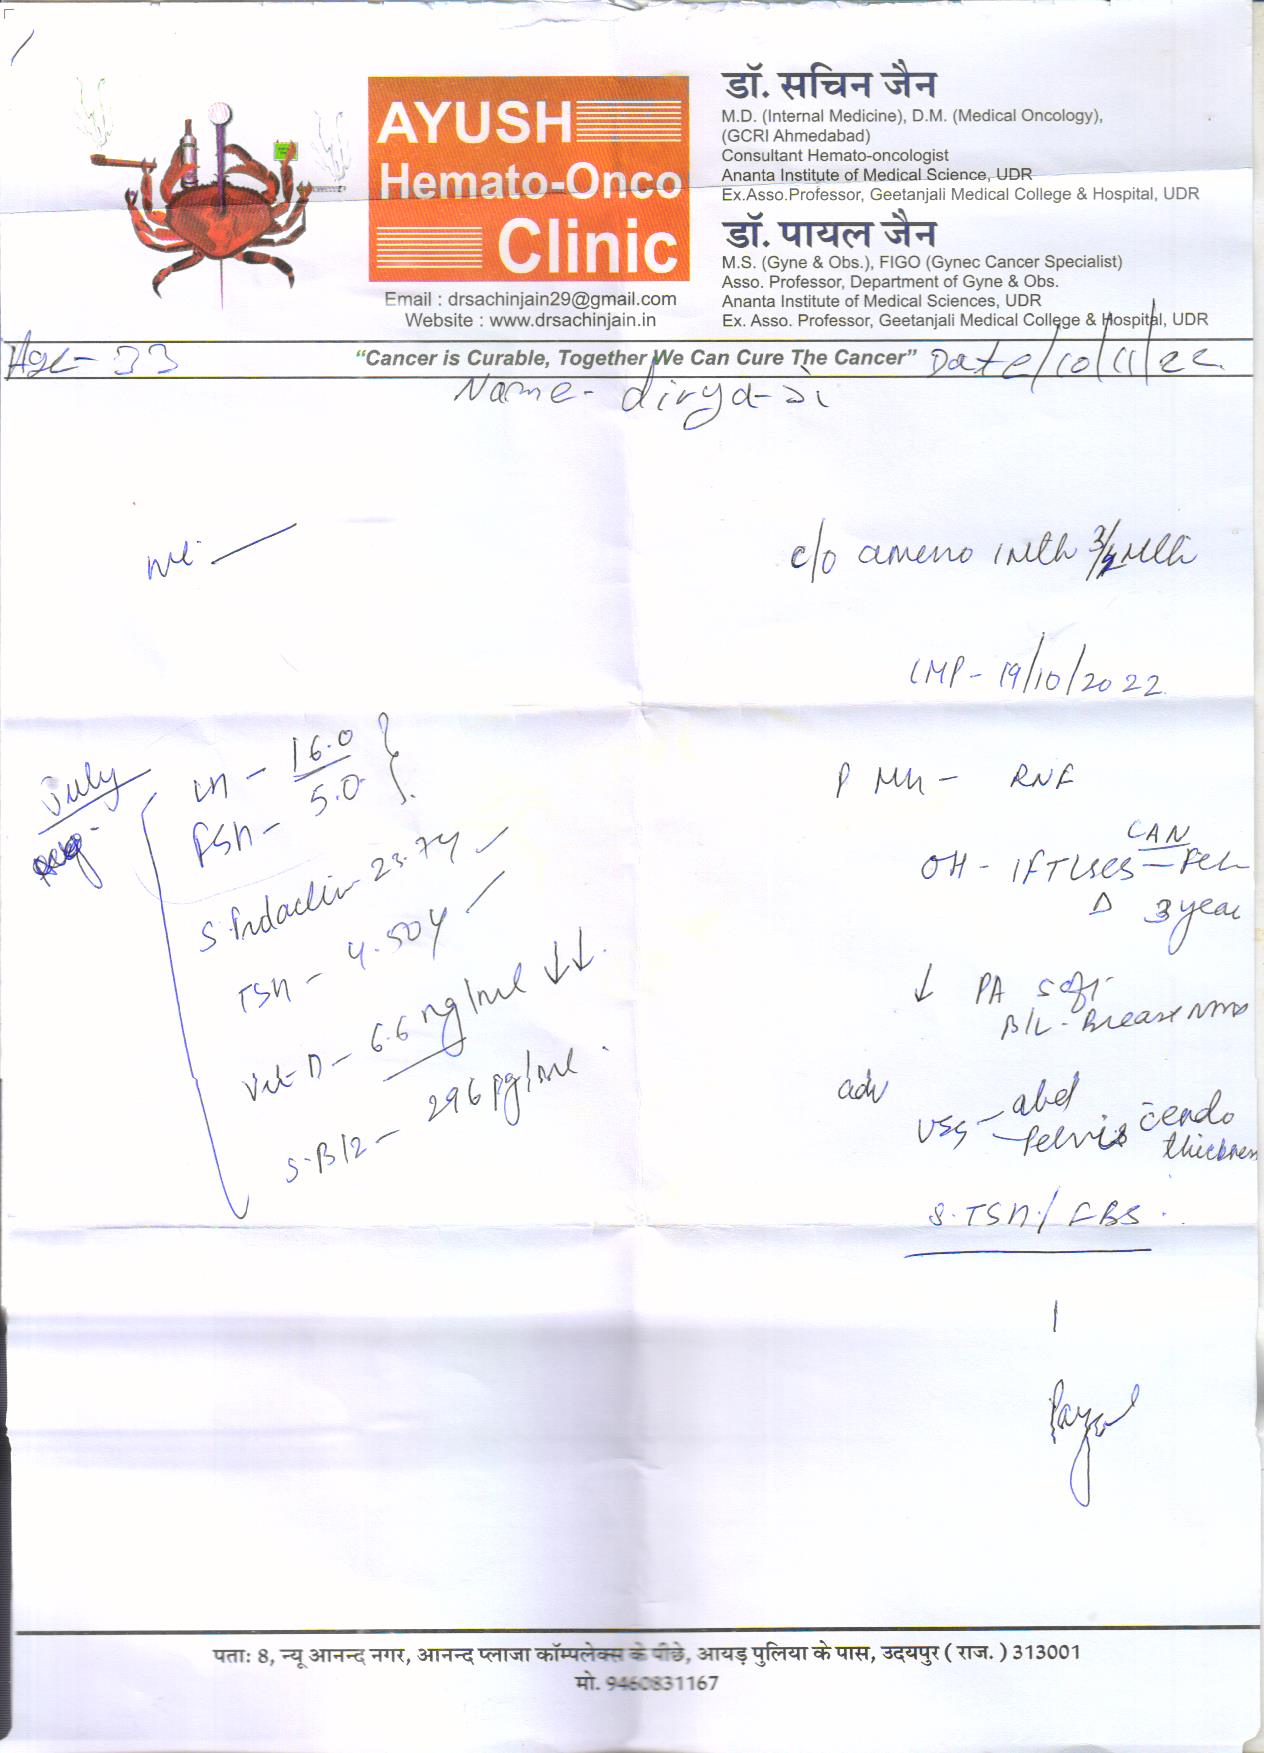 AYUSH
Hemato-Onco
Clinic
Email : drsachinjain29@gmail.com
Website : www.drsachinjain.in
डॉ. सचिन जैन
M.D. (Internal Medicine), D.M. (Medical Oncology),
(GCRI Ahmedabad)
Consultant Hemato-oncologist
Ananta Institute of Medical Science, UDR
Ex.Asso.Professor, Geetanjali Medical College & Hospital, UDR
डॉ. पायल जैन
M.S. (Gyne & Obs.), FIGO (Gynec Cancer Specialist)
Asso. Professor, Department of Gyne & Obs.
Ananta Institute of Medical Sciences, UDR
Ex. Asso. Professor, Geetanjali Medical College & Hospital, UDR
Age - 33
“Cancer is Curable, Together We Can Cure The Cancer”
Date/10/11/22
Name -
c/o ameno
LMP - 19/10/2022
July
LH - 16.0
FSH - 5.0
S. Prolactin - 23.74
TSH - 4.504
Vit D - 6.6 ng/ml ↓↓
S.B12 - 296 pg/ml
P MH -
OH - 1FTLSCS
3 year
↓ PA soft
B/L - Breast
adv
USG - abd
- Pelvis c̄ endo
thickness
S.TSH / FBS
पता: 8, न्यू आनन्द नगर, आनन्द प्लाजा कॉम्पलेक्स के पीछे, आयड़ पुलिया के पास, उदयपुर ( राज. ) 313001
मो. 9460831167